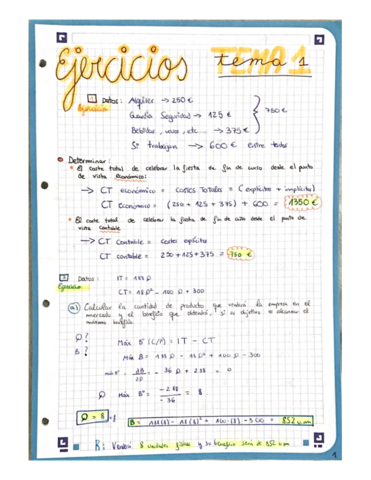 Ejercicios tema 1
1 Datos: Alquiler → 250 €
Ejercicio
Guardia Seguridad → 125 €
750 €
Bebidas, vasos, etc → 375 €
Si trabajan → 600 € entre todos
Determinar:
El coste total de celebrar la fiesta de fin de curso desde el punto
de vista económico:
→ CT económico = costes Totales = (explícitos + implícitos)
CT económico = (250 + 125 + 375) + 600 = 1350 €
El coste total de celebrar la fiesta de fin de año desde el punto de
vista contable
→ CT contable = costes explícitos
CT contable = 250 + 125 + 375 = 750 €
Datos: IT = 188 Q
Ejercicio
CT = 18 Q² - 100 Q + 300
a) Calcular la cantidad de producto que venderá la empresa en el
mercado y el beneficio que obtendrá, si su objetivo es alcanzar el
máximo beneficio
Q?
B?
Máx Bº = IT - CT
Máx B = 188 Q - 18 Q² + 100 Q - 300
- 36 Q + 288 = 0
Q Máx Bº = -288 / -36 = 8
Q = 8
B = 188(8) - 18(8)² + 100·(8) - 300 = 852 u.m
R: Venderá 8 unidades físicas y su beneficio será de 852 u.m
1